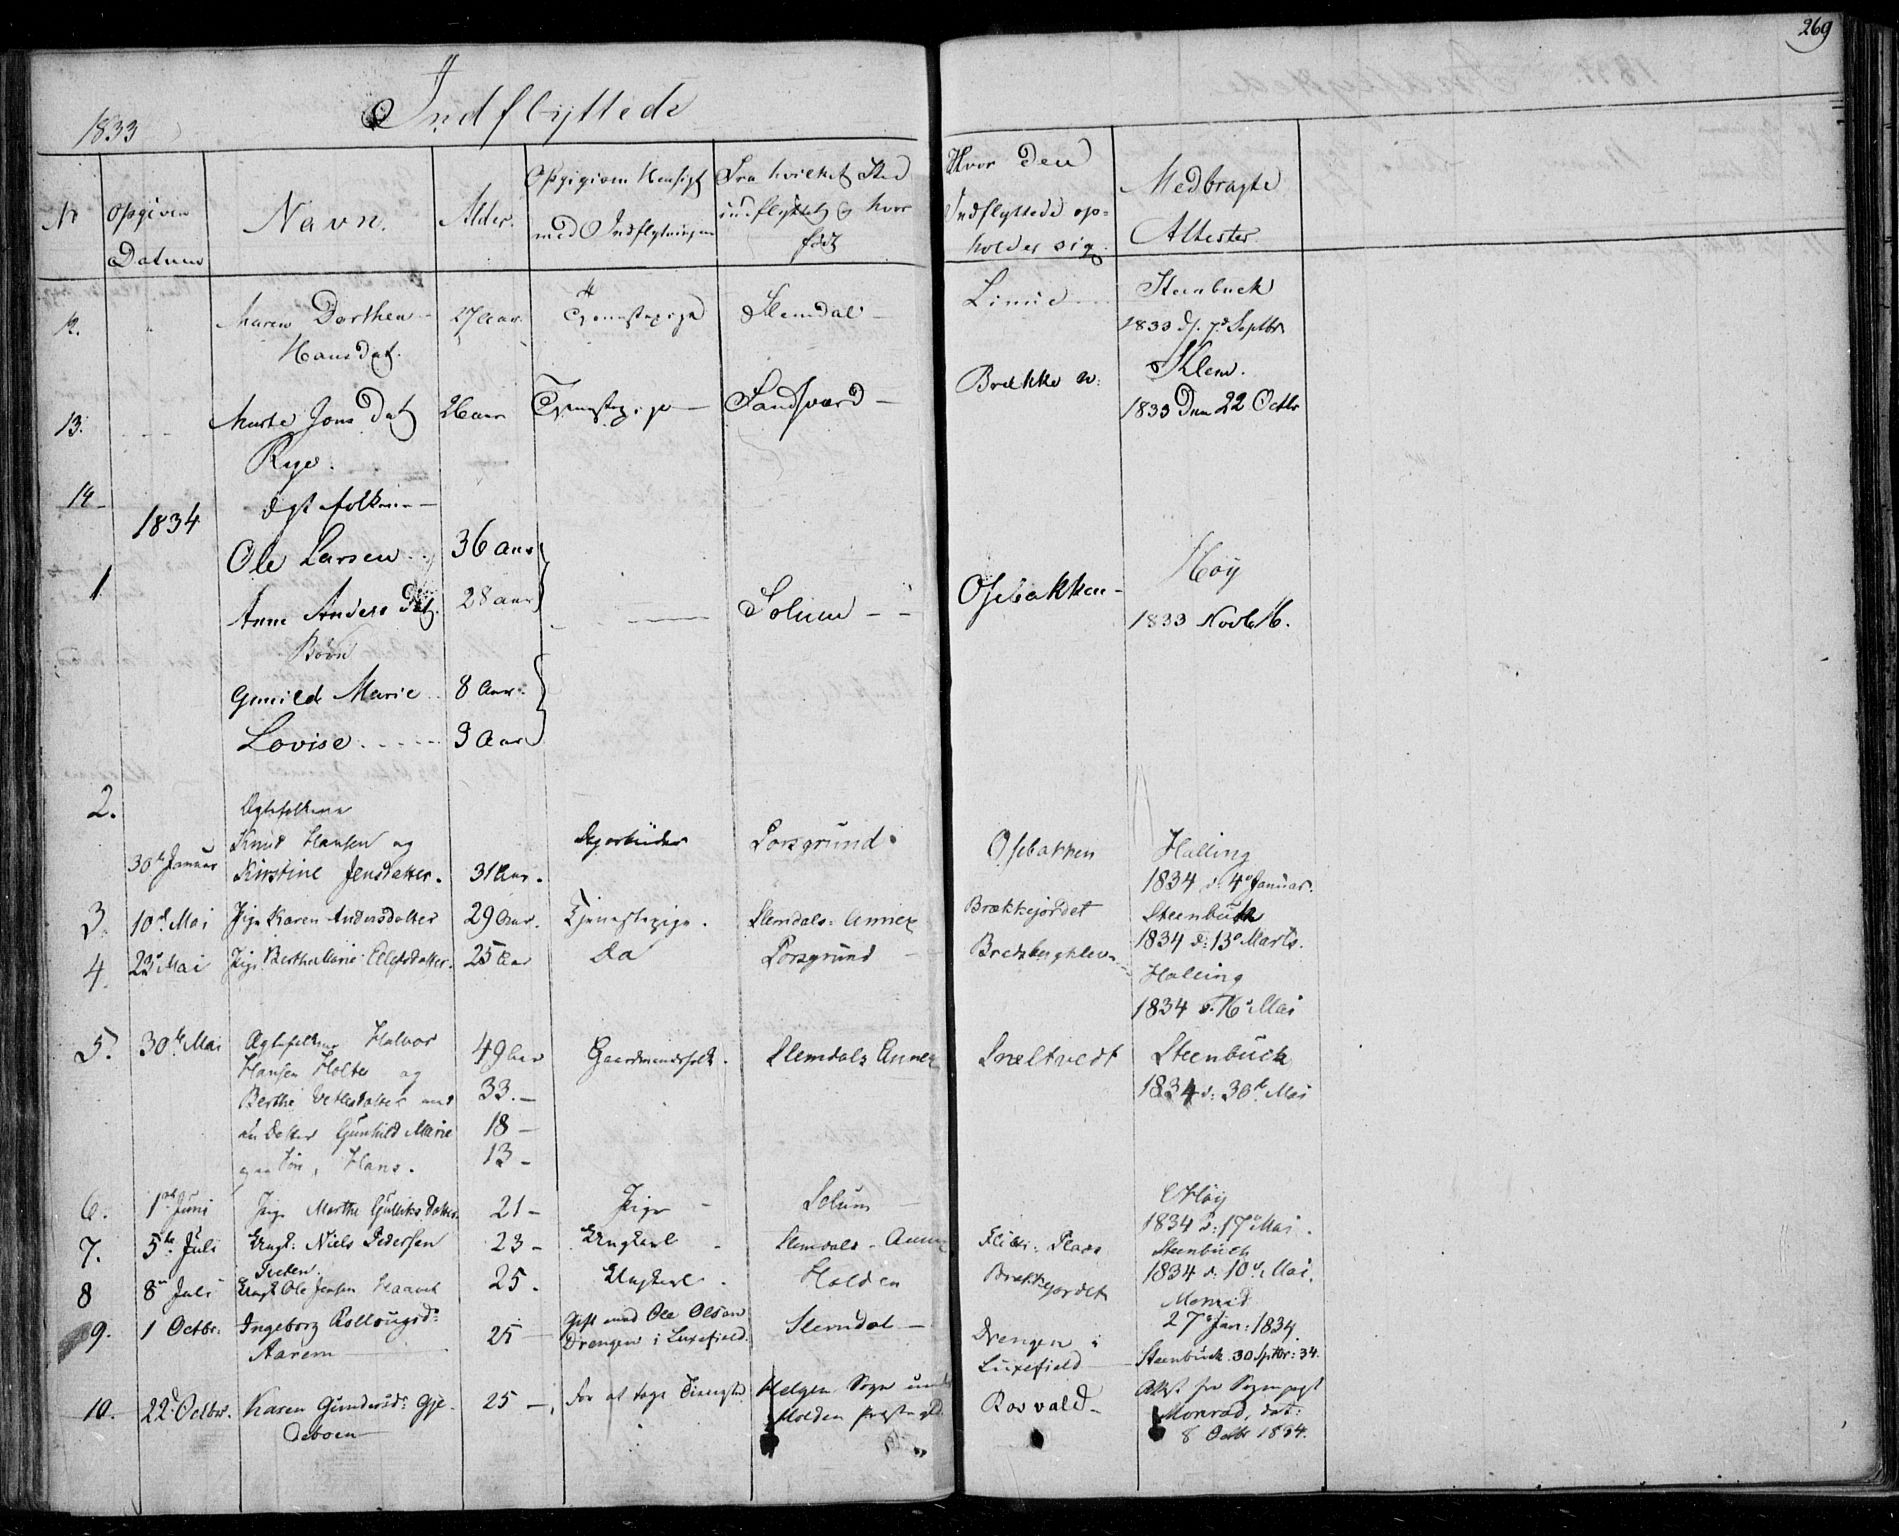 269
1833
Indflyttede
Nr
Opgiven Datum
Navn.
Alder.
Opgiven Hensigt med Indflytningen
Fra hvilket Sted indflyttet og hvor født
Hvor den Indflyttede opholder sig.
Medbragte Attester
12. Maren Dorthea Hansdat. 27 Aar. Tjenestepige Slemdal Limie Steenbuch 1833 d. 7de Septbr
13. Marte Jons Dat 26 aar Tjenestepige Sandsværd Brække Klem. 1833 Den 22 Octbr
Rye.
14
1834
Egtefolkene
1 Ole Larsen 36 aar
Anne Anders Dat. 28 aar Solum Osebakken Høy 1833 Novbr 16.
Børn
Gunild Marie 8 Aar.
Lovise 3 Aar
2. Ægtefolkene
30te Januar Knud Hansen og Dagarbeider Porsgrund Osebakken Halling
Kirstine Jensdatter. 31 Aar. 1834 d: 4de Januar.
3. 10de Mai Pige Karen Andersdatter 29 Aar. Tjenestepige. Slemdals Annex Brækkejordet Steenbuch 1834 d: 13de Marts.
4. 23de Mai Pige Berthe Marie Ellefsdatter. 25 Aar Do Porsgrund Halling 1834 d. 16de Mai
5. 30te Mai Ægtefolkene Halvor 49 Aar Gaardmandsfolk. Slemdals Annex Snæltvedt Steenbuch
Hansen Holte og 33. 1834 d: 30te Mai
Berthe Detlefsdatter med
en Datter Gunhild Marie 18
og en Søn, Hans. 13
6. 1ste Juni Pige Marthe Gulliksdatter 21 Pige Solum Høy 1834 d: 17de Mai.
7. 5te Juli Ungk: Niels Pedersen 23 Ungkarl Slemdals Annex Plads Steenbuch 1834 d: 10de Mai.
8 8de Juli Ungk Ole Jensen 25. Ungkarl. Holden Brækkejordet Monrad 27de Jan: 1834.
9. 1 Octbr. Ingeborg Rollougsd: Aarem 25 Gift med Ole Olsen Drengen i Luxefjeld. Slemdal Drengen i Luxefield Steenbuch. 30 Septbr: 34.
10. 22d Octbr. Karen Gundersd: Gjedeboen 25 For at tage Tieneste Helgen Sogn under Holden Præstegjd. Rosvald Attest fra Sognepræst Monrad, dat: 8 Octbr 1834.